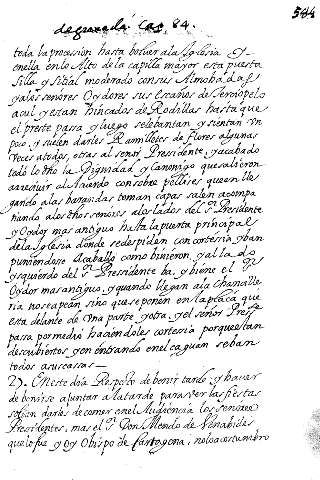 de granada Cap. 84.
584
toda la procession hasta bolver a la Iglesia Y
en ella en lo Alto de la capilla mayor esta puesta
silla y sitial moderado con sus Almohadas
y a los señores Oydores sus Escaños de terciopelo
açul y estan hincados de Rodillas hasta que
el preste passa y luego se lebantan y sientan un
poco, y suelen darles Ramilletes de flores algunas
veces a todos, otras al señor Presidente, y acabado
todo lo dho la Dignidad y Canonigo que salieron
a recivir el
gando a las barandas toman capas salen acompa
ñando a los dhos señores a los lados del s.r Presidente
y Oydor mas antiguo hasta la puerta principal
de la Iglesia donde se despiden con cortesia y ban
puniendose a caballo como binieron, y al lado
ysquierdo del s.r Presidente ba, y biene el s.r
Oydor mas antiguo, y quando llegan a la Chancille
ria no se apean sino que se ponen en la plaça que
esta delante de una parte y otra, y el señor Presi.te
passa por medio haciendoles cortesia porque estan
descubiertos, y en entrando en el çaguan se ban
todos a sus cassas —
27. En este dia Respeto de benir tarde, y haver
de benirse a juntar a la tarde para ver las fiestas
solian darles de comer en el Audiencia los señores
Presidentes, mas el s.r Don Mendo de Benabides
que lo fue y oy Obispo de Cartagena; no lo acostumbro